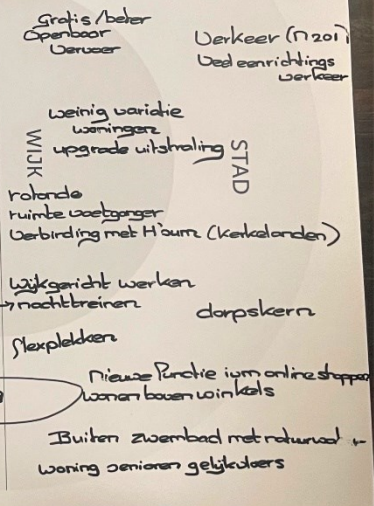 Gratis/beter
Openbaar
Vervoer
Verkeer (N201)
Veel eenrichtings
verkeer
weinig variatie
woningen
upgrade uitstraling
WIJK
STAD
rotonde
ruimte voetganger
Verbinding met H'sum (Kerkelanden)
Wijkgericht werken
→ nachttreinen
dorpskern
flexplekken
nieuwe functie ivm online shoppen
wonen boven winkels
Buiten zwembad met
woning senioren gelijkvloers